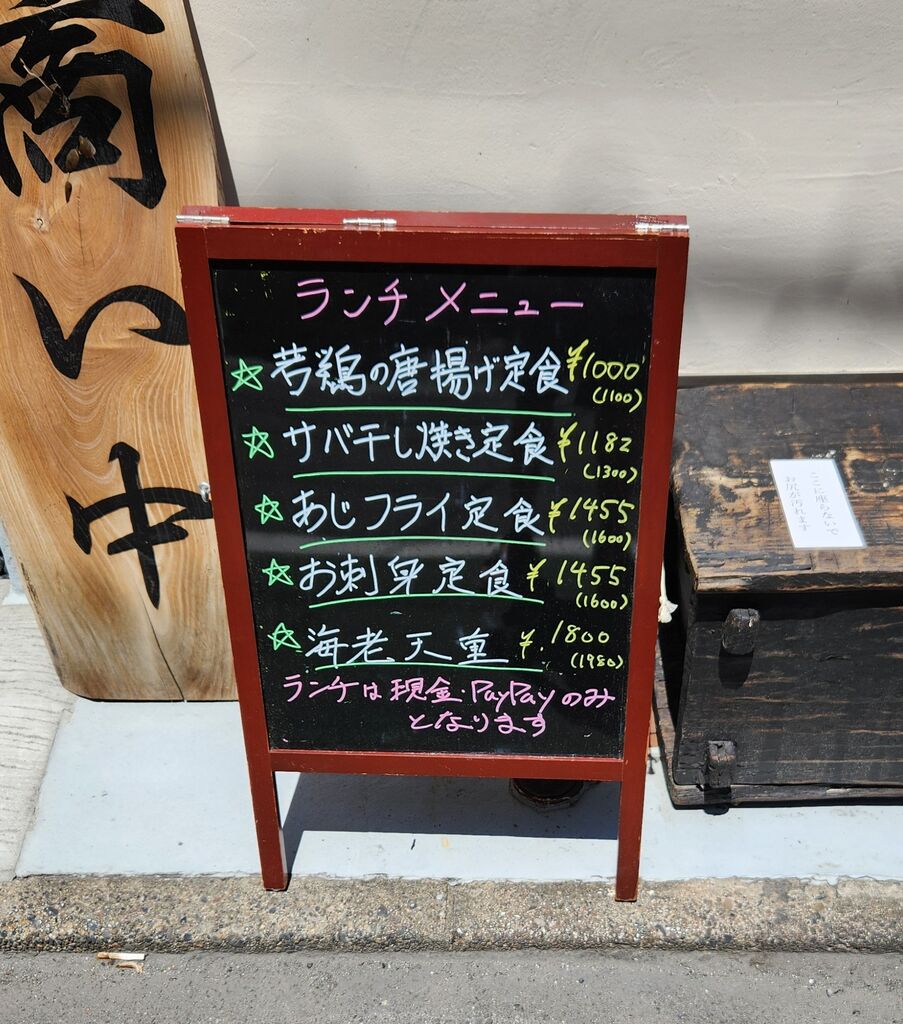 商い中
ランチメニュー
☆若鶏の唐揚げ定食 ¥1000
(1100)
☆サバ干し焼き定食 ¥1182
(1300)
☆あじフライ定食 ¥1455
(1600)
☆お刺身定食 ¥.1455
(1600)
☆海老天重 ¥.1800
(1980)
ランチは現金・PayPayのみ
となります
ここに座らないで
お尻が汚れます